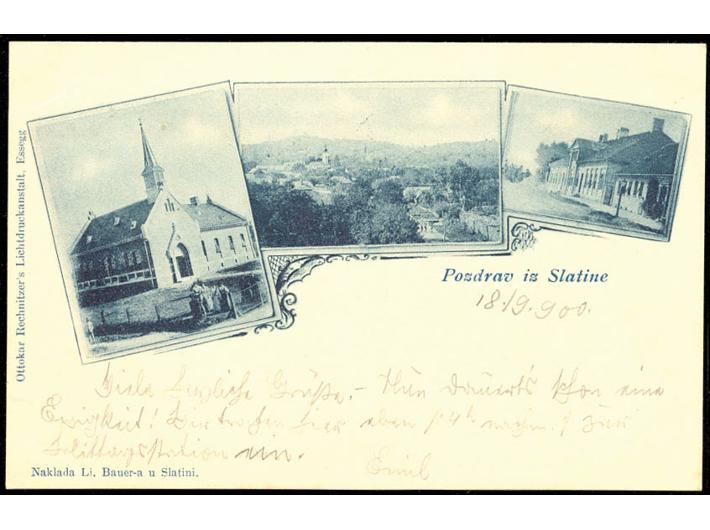 Ottokar Rechnitzer's Lichtdruckanstalt, Essegg
Pozdrav iz Slatine
18./9. 900.
Viele herzliche Grüße. – Nun dauert's schon eine
Ewigkeit! Wir trafen hier eben (4h nachm.) zur
station ein.
Emil
Naklada Li. Bauer-a u Slatini.